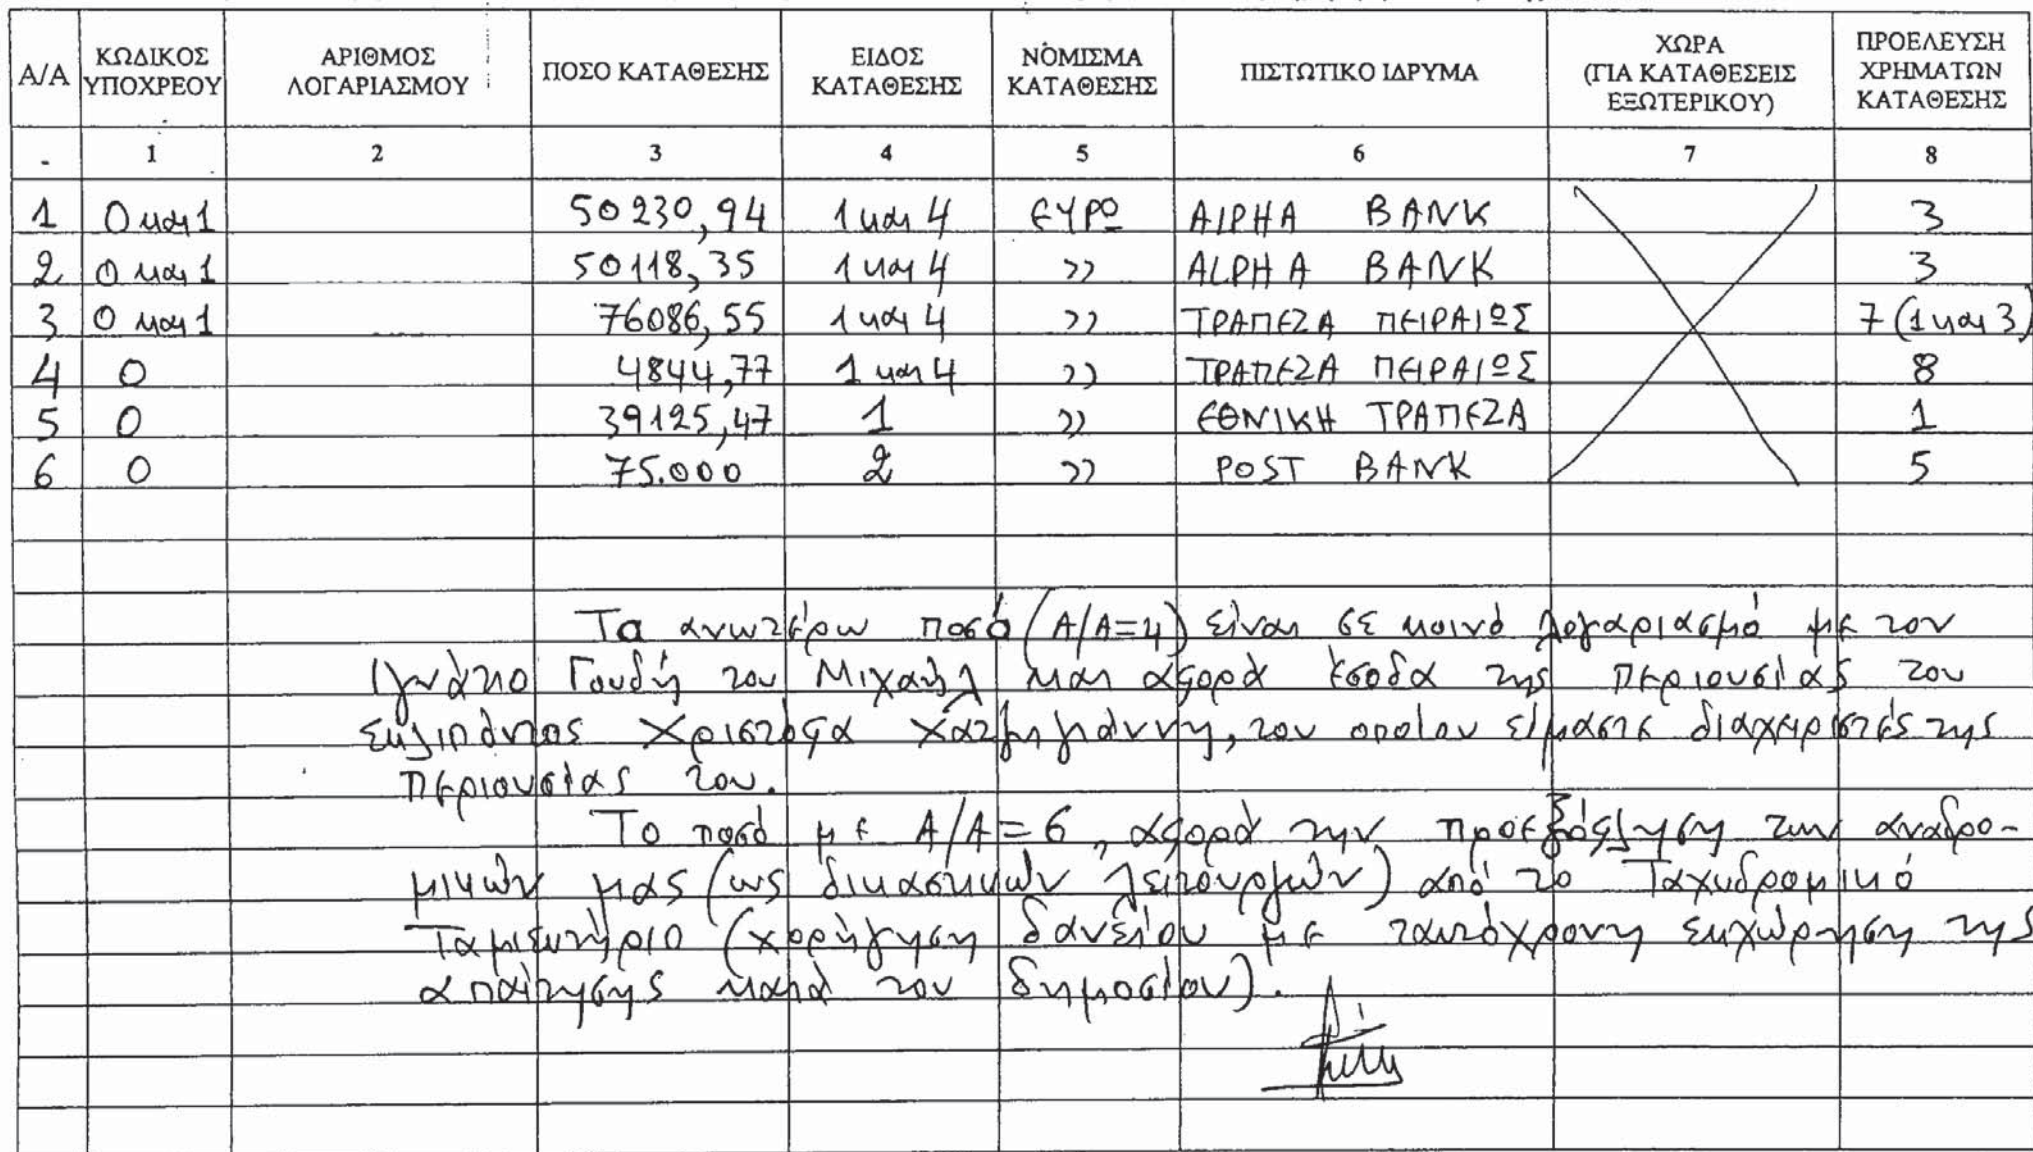 Α/Α ΚΩΔΙΚΟΣ ΥΠΟΧΡΕΟΥ ΑΡΙΘΜΟΣ ΛΟΓΑΡΙΑΣΜΟΥ ΠΟΣΟ ΚΑΤΑΘΕΣΗΣ ΕΙΔΟΣ ΚΑΤΑΘΕΣΗΣ ΝΟΜΙΣΜΑ ΚΑΤΑΘΕΣΗΣ ΠΙΣΤΩΤΙΚΟ ΙΔΡΥΜΑ ΧΩΡΑ (ΓΙΑ ΚΑΤΑΘΕΣΕΙΣ ΕΞΩΤΕΡΙΚΟΥ) ΠΡΟΕΛΕΥΣΗ ΧΡΗΜΑΤΩΝ ΚΑΤΑΘΕΣΗΣ
- 1 2 3 4 5 6 7 8
1 0 και 1 50230,94 1 και 4 ΕΥΡΩ ALPHA BANK 3
2 0 και 1 50118,35 1 και 4 >> ALPHA BANK 3
3 0 και 1 76086,55 1 και 4 >> ΤΡΑΠΕΖΑ ΠΕΙΡΑΙΩΣ 7 (1 και 3)
4 0 4844,77 1 και 4 >> ΤΡΑΠΕΖΑ ΠΕΙΡΑΙΩΣ 8
5 0 39125,47 1 >> ΕΘΝΙΚΗ ΤΡΑΠΕΖΑ 1
6 0 75.000 2 >> POST BANK 5
Τα ανωτέρω ποσά (Α/Α=4) είναι σε κοινό λογαριασμό με τον
Ιγνάτιο Γουδή του Μιχαήλ και αφορά έσοδα της περιουσίας του
εκλιπόντος Χριστόφα Χατζηγιάννη, του οποίου είμαστε διαχειριστές της
περιουσίας του.
Το ποσό με Α/Α=6, αφορά την προεξόφληση των αναδρο-
μικών μας (ως δικαστικών λειτουργών) από το Ταχυδρομικό
Ταμιευτήριο (χορήγηση δανείου με ταυτόχρονη εκχώρηση της
απαίτησης κατά του δημοσίου).